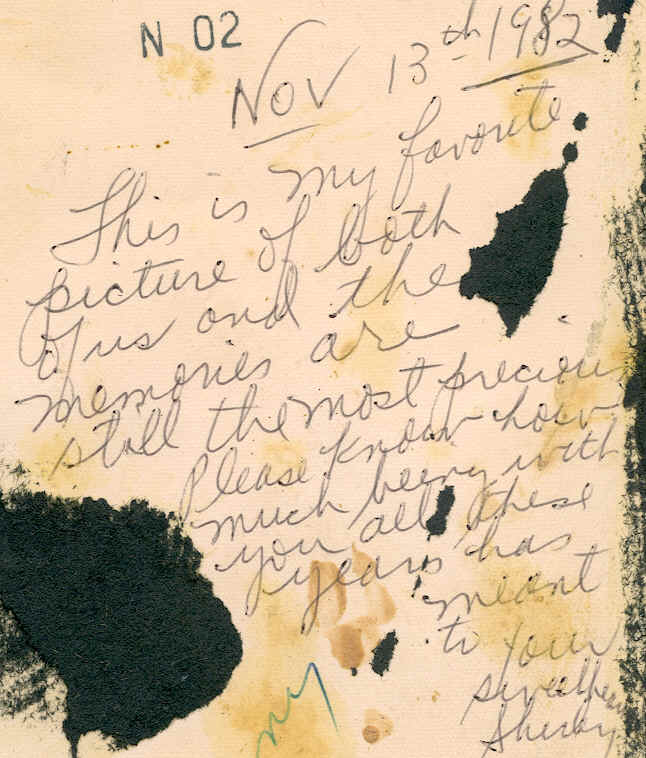 N 02
Nov 13th 1982
This is my favorite
picture of both
of us and the
memories are
still the most precious
Please know how
much being with
you all these
years has
meant
to your
sweetheart
Shirley
my